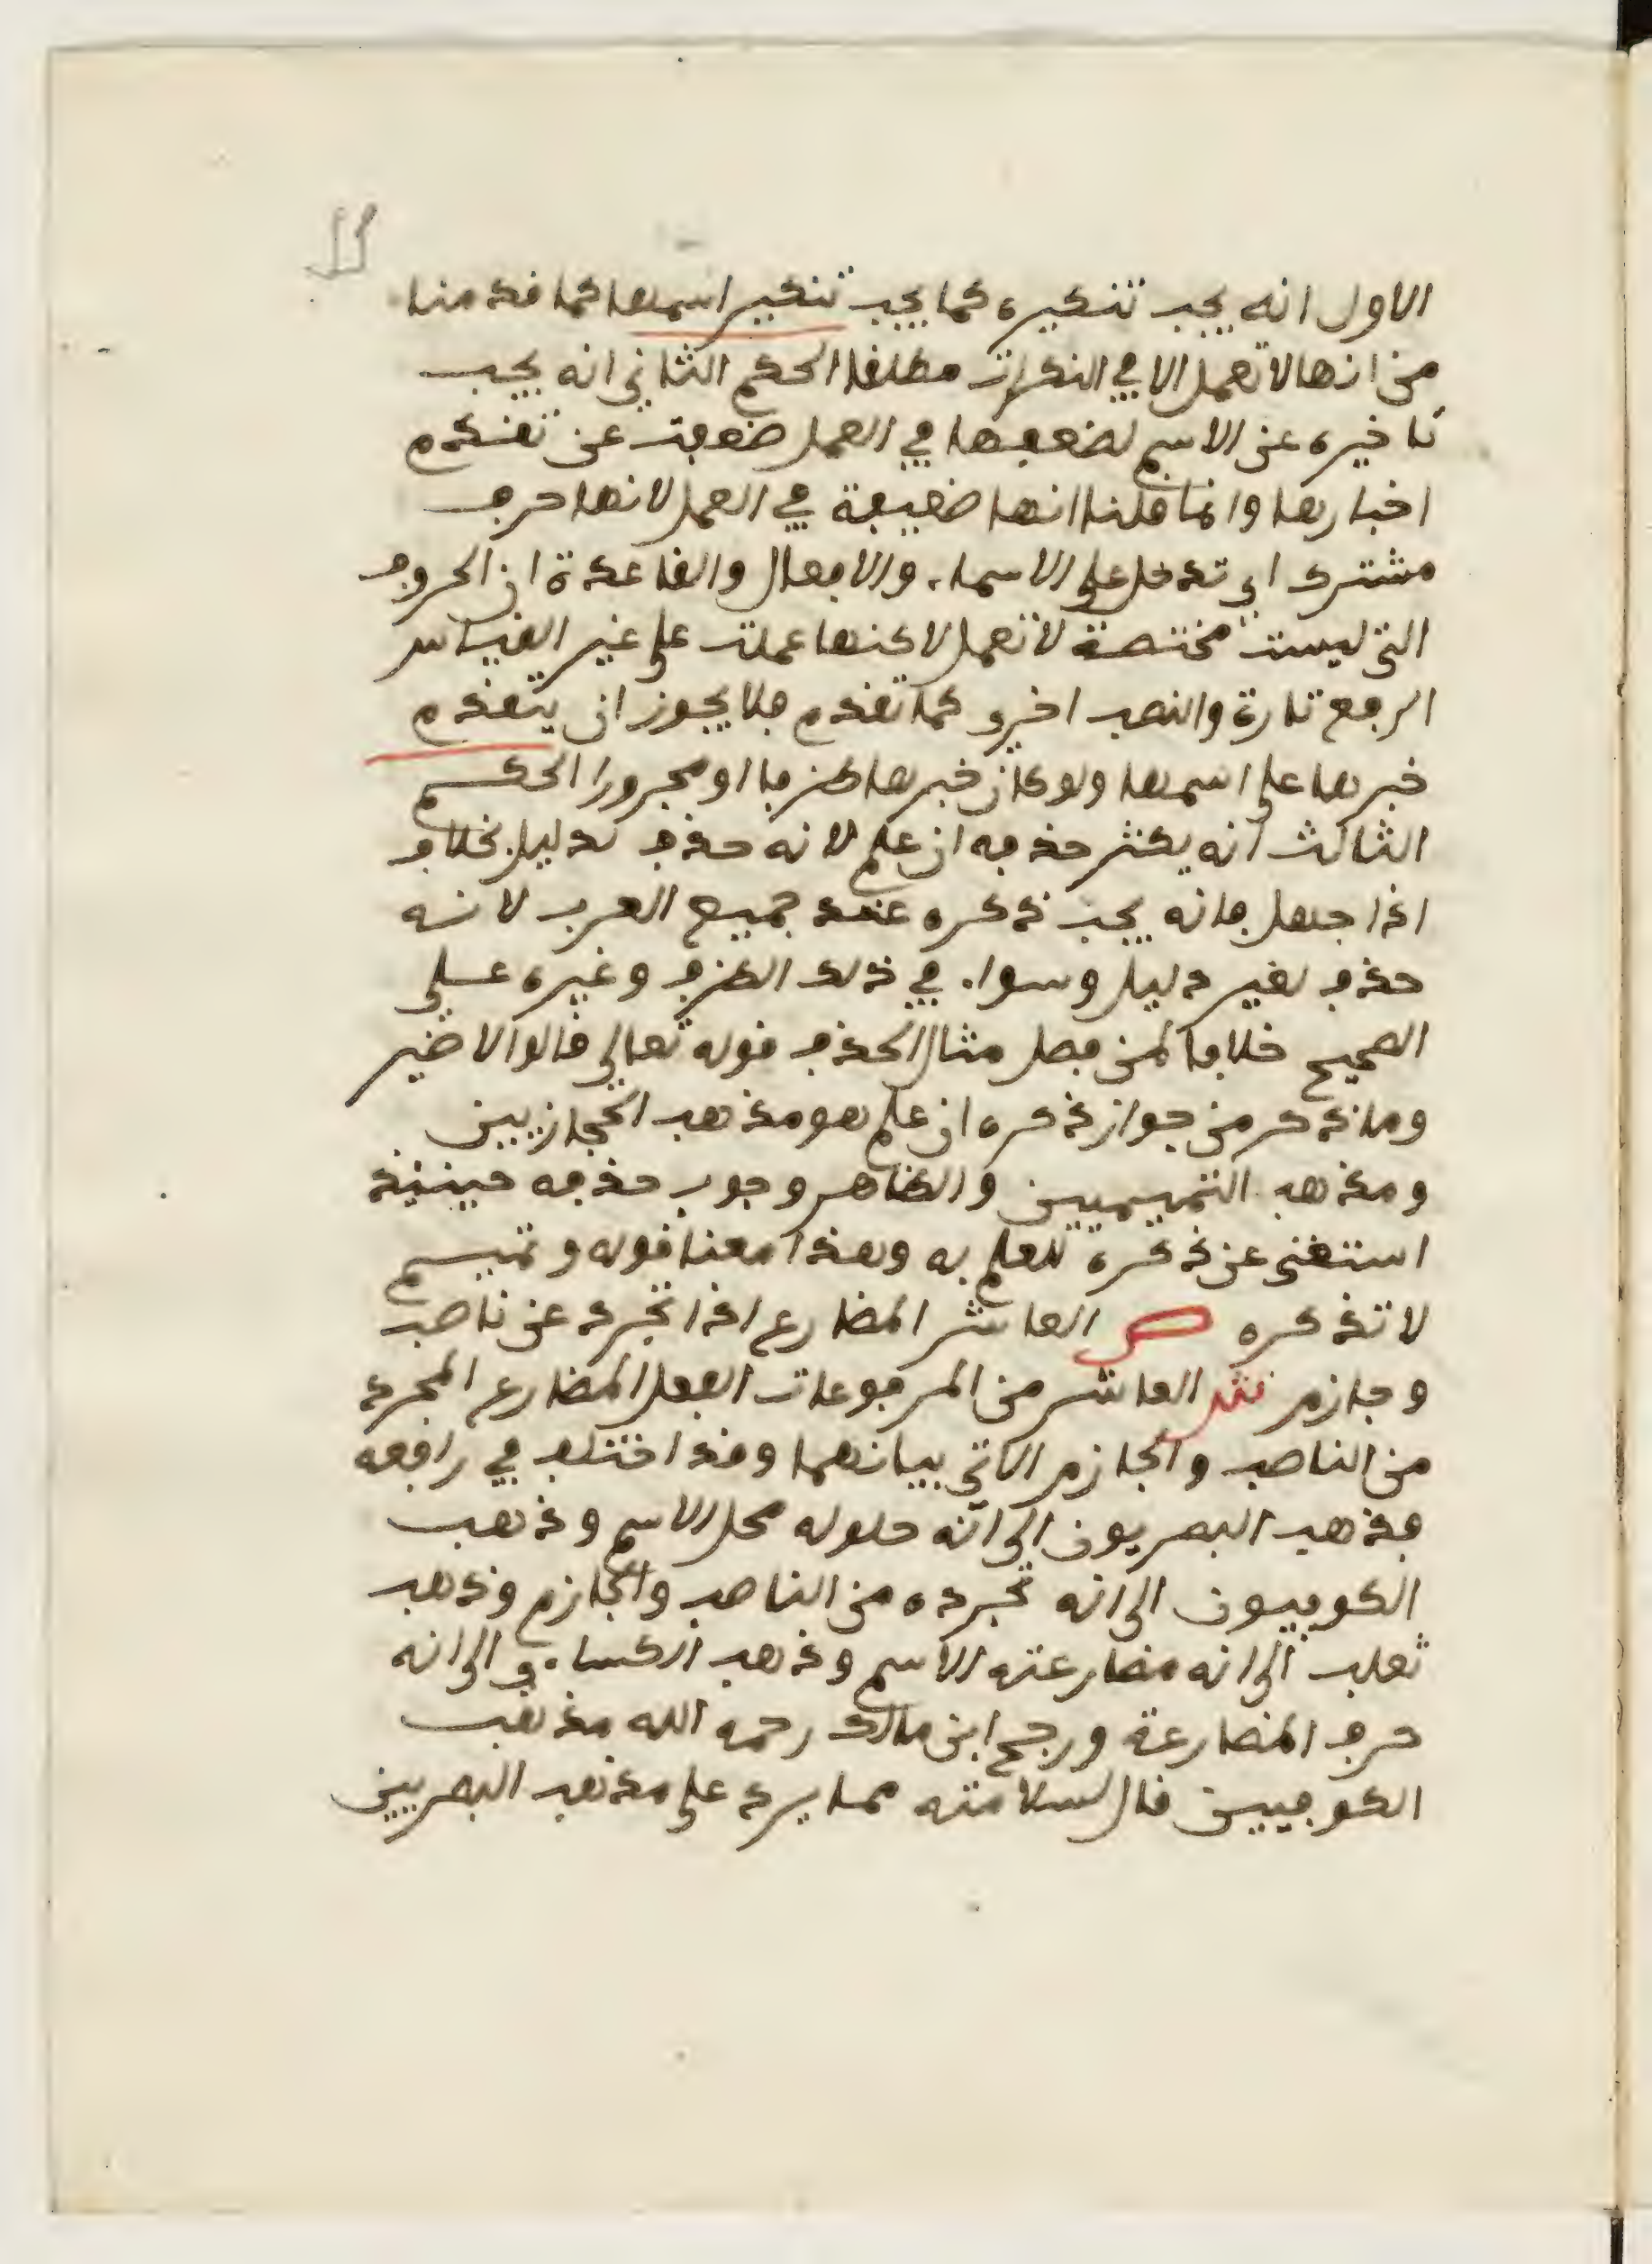 الاول انه يجب تنكيره كما يجب تنكير اسمها كما قدمنا
من انها لا تعمل الا في النكرات مطلقا الحكم الثاني انه يجب
تاخيره عن الاسم لضعفها في العمل ضعفت عن تقدم
اخبارها وانما قلنا انها ضعيفة في العمل لانها حرف
مشترك اي تدخل على الاسماء والافعال والقاعدة ان الحروف
التي ليست مختصة لا تعمل لاكنها عملت على غير القياس
الرفع تارة والنصب اخرى كما تقدم فلا يجوز ان يتقدم
خبرها على اسمها ولو كان خبرها ظرفا او مجرورا الحكم
الثالث انه يكثر حذفه ان علم لانه حذف لدليل بخلاف
اذا جهل فانه يجب ذكره عند جميع العرب لانه
حذف لغير دليل وسواء في ذلك الظرف وغيره على
الصحيح خلافا لمن فصل مثال الحذف قوله تعالى قالوا لا ضير
وما ذكر من جواز ذكره ان علم هو مذهب الحجازيين
ومذهب التميميين والظاهر وجوب حذفه حينئذ
استغنى عن ذكره للعلم به وهذا معنا قوله وتميم
لا تذكره ص العاشر المضارع اذا تجرد عن ناصب
وجازم ش العاشر من المرفوعات الفعل المضارع المجرد
من الناصب والجازم الاتي بيانهما وقد اختلف في رافعه
فذهب البصريون الى انه حلوله محل الاسم وذهب
الكوفيون الى انه تجرده من الناصب والجازم وذهب
ثعلب الى انه مضارعته الاسم وذهب الكساءي الى انه
حرف المضارعة ورجح ابن مالك رحمه الله مذهب
الكوفيين قال لسلامته مما يرد على مذهب البصريين